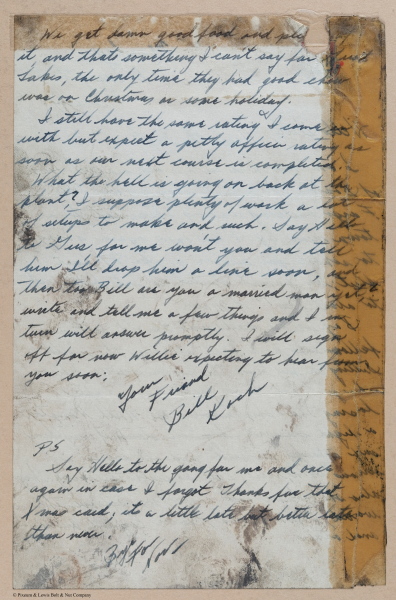 We get damn good food and plenty
it and thats something I can't say for Great
Lakes, the only time they had good chow
was on Christmas or some holiday.
I still have the same rating I came in
with but expect a petty officer rating as
soon as our next course is completed.
What the hell is going on back at the
plant? I suppose plenty of work a lot
of setups to make and such. Say Hello
to Gus for me won't you and tell
him I'll drop him a line soon, and
then too Bill are you a married man yet?
write and tell me a few things and I in
turn will answer promptly. I will sign
off for now Willie expecting to hear from
you soon;
Your Friend
Bill Koch
PS
Say Hello to the gang for me and once
again in case I forget Thanks for that
Xmas card, it a little late but better late
than never.
Bill Koch
© Pheoll & Lewis Bolt & Nut Company